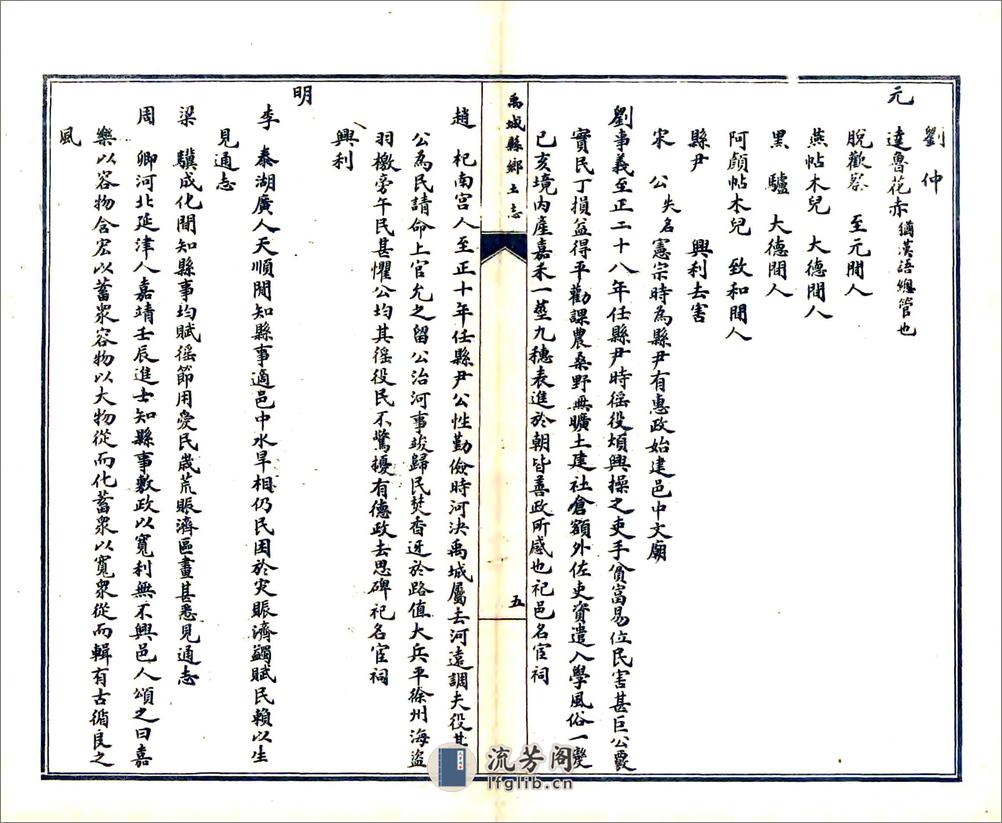 劉仲
元
達魯花赤 猶漢語總管也
脫歡答 至元間人
燕帖木兒 大德間人
黑驢 大德間人
阿顏帖木兒 致和間人
縣尹 興利去害
宋 公失名憲宗時為縣尹有惠政始建邑中文廟
劉事義至正二十八年任縣尹時徭役煩興操之吏手貧富易位民害甚巨公覈
實民丁損益得平勸課農桑野無曠土建社倉額外佐吏資遣入學風俗一變
己亥境內產嘉禾一莖九穗表進於朝皆善政所感也祀邑名宦祠
禹城縣鄉土志
五
趙 杞南宮人至正十年任縣尹公性勤儉時河決禹城屬去河遠調夫役甚
公為民請命上官允之留公治河事竣歸民焚香迓於路值大兵平徐州海盜
羽檄旁午民甚懼公均其徭役民不驚擾有德政去思碑祀名宦祠
興利
明
李 泰湖廣人天順間知縣事適邑中水旱相仍民困於災賑濟蠲賦民賴以生
見通志
梁 驥成化間知縣事均賦徭節用愛民歲荒賑濟區畫甚悉見通志
周 卿河北延津人嘉靖壬辰進士知縣事敷政以寬利無不興邑人頌之曰嘉
樂以容物含宏以蓄眾容物以大物從而化蓄眾以寬眾從而輯有古循良之
風
流芳阁
lfglib.cn